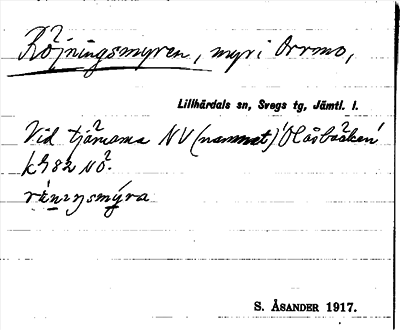 Röjningsmyren, myr i Orrmo,
Lillhärdals sn, Svegs tg, Jämtl. l.
Vid tjärnarna NV (namnet) Olåsbäcken
k 982 NÖ.
S. ÅSANDER 1917.